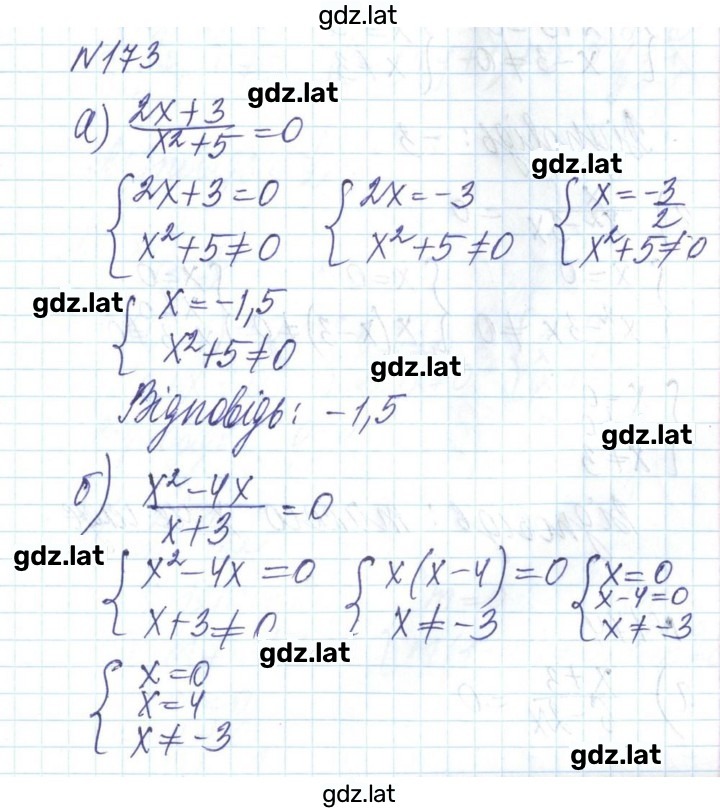 gdz.lat
N173
gdz.lat
а) (2x+3)/(x²+5) = 0
gdz.lat
{2x+3=0 {2x=-3 {x=-3/2
x²+5≠0 x²+5≠0 x²+5≠0
gdz.lat
{x=-1,5
x²+5≠0
gdz.lat
Відповідь: -1,5
gdz.lat
б) (x²-4x)/(x+3) = 0
gdz.lat
{x²-4x=0 {x(x-4)=0 {x=0
x-4=0
x+3≠0 x≠-3 x≠-3
gdz.lat
{x=0
x=4
x≠-3
gdz.lat
gdz.lat